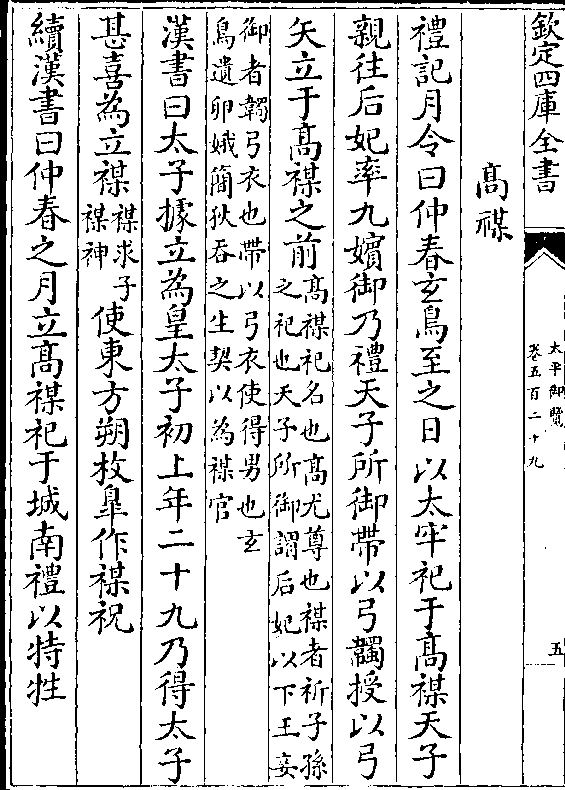 欽定四庫全書
太平御覽
卷五百二十九
五
高禖
禮記月令曰仲春玄鳥至之日以太牢祀于高禖天子
親往后妃率九嬪御乃禮天子所御帶以弓韣授以弓
矢立于高禖之前
高禖祀名也高尤尊也禖者祈子孫
之祀也天子所御謂后妃以下王妾
御者韣弓衣也帶以弓衣使得男也玄
鳥遺卵娀簡狄吞之生契以為禖官
漢書曰太子據立為皇太子初上年二十九乃得太子
甚喜為立禖
禖求子
禖神
使東方朔枚臯作禖祝
續漢書曰仲春之月立高禖祀于城南禮以特牲